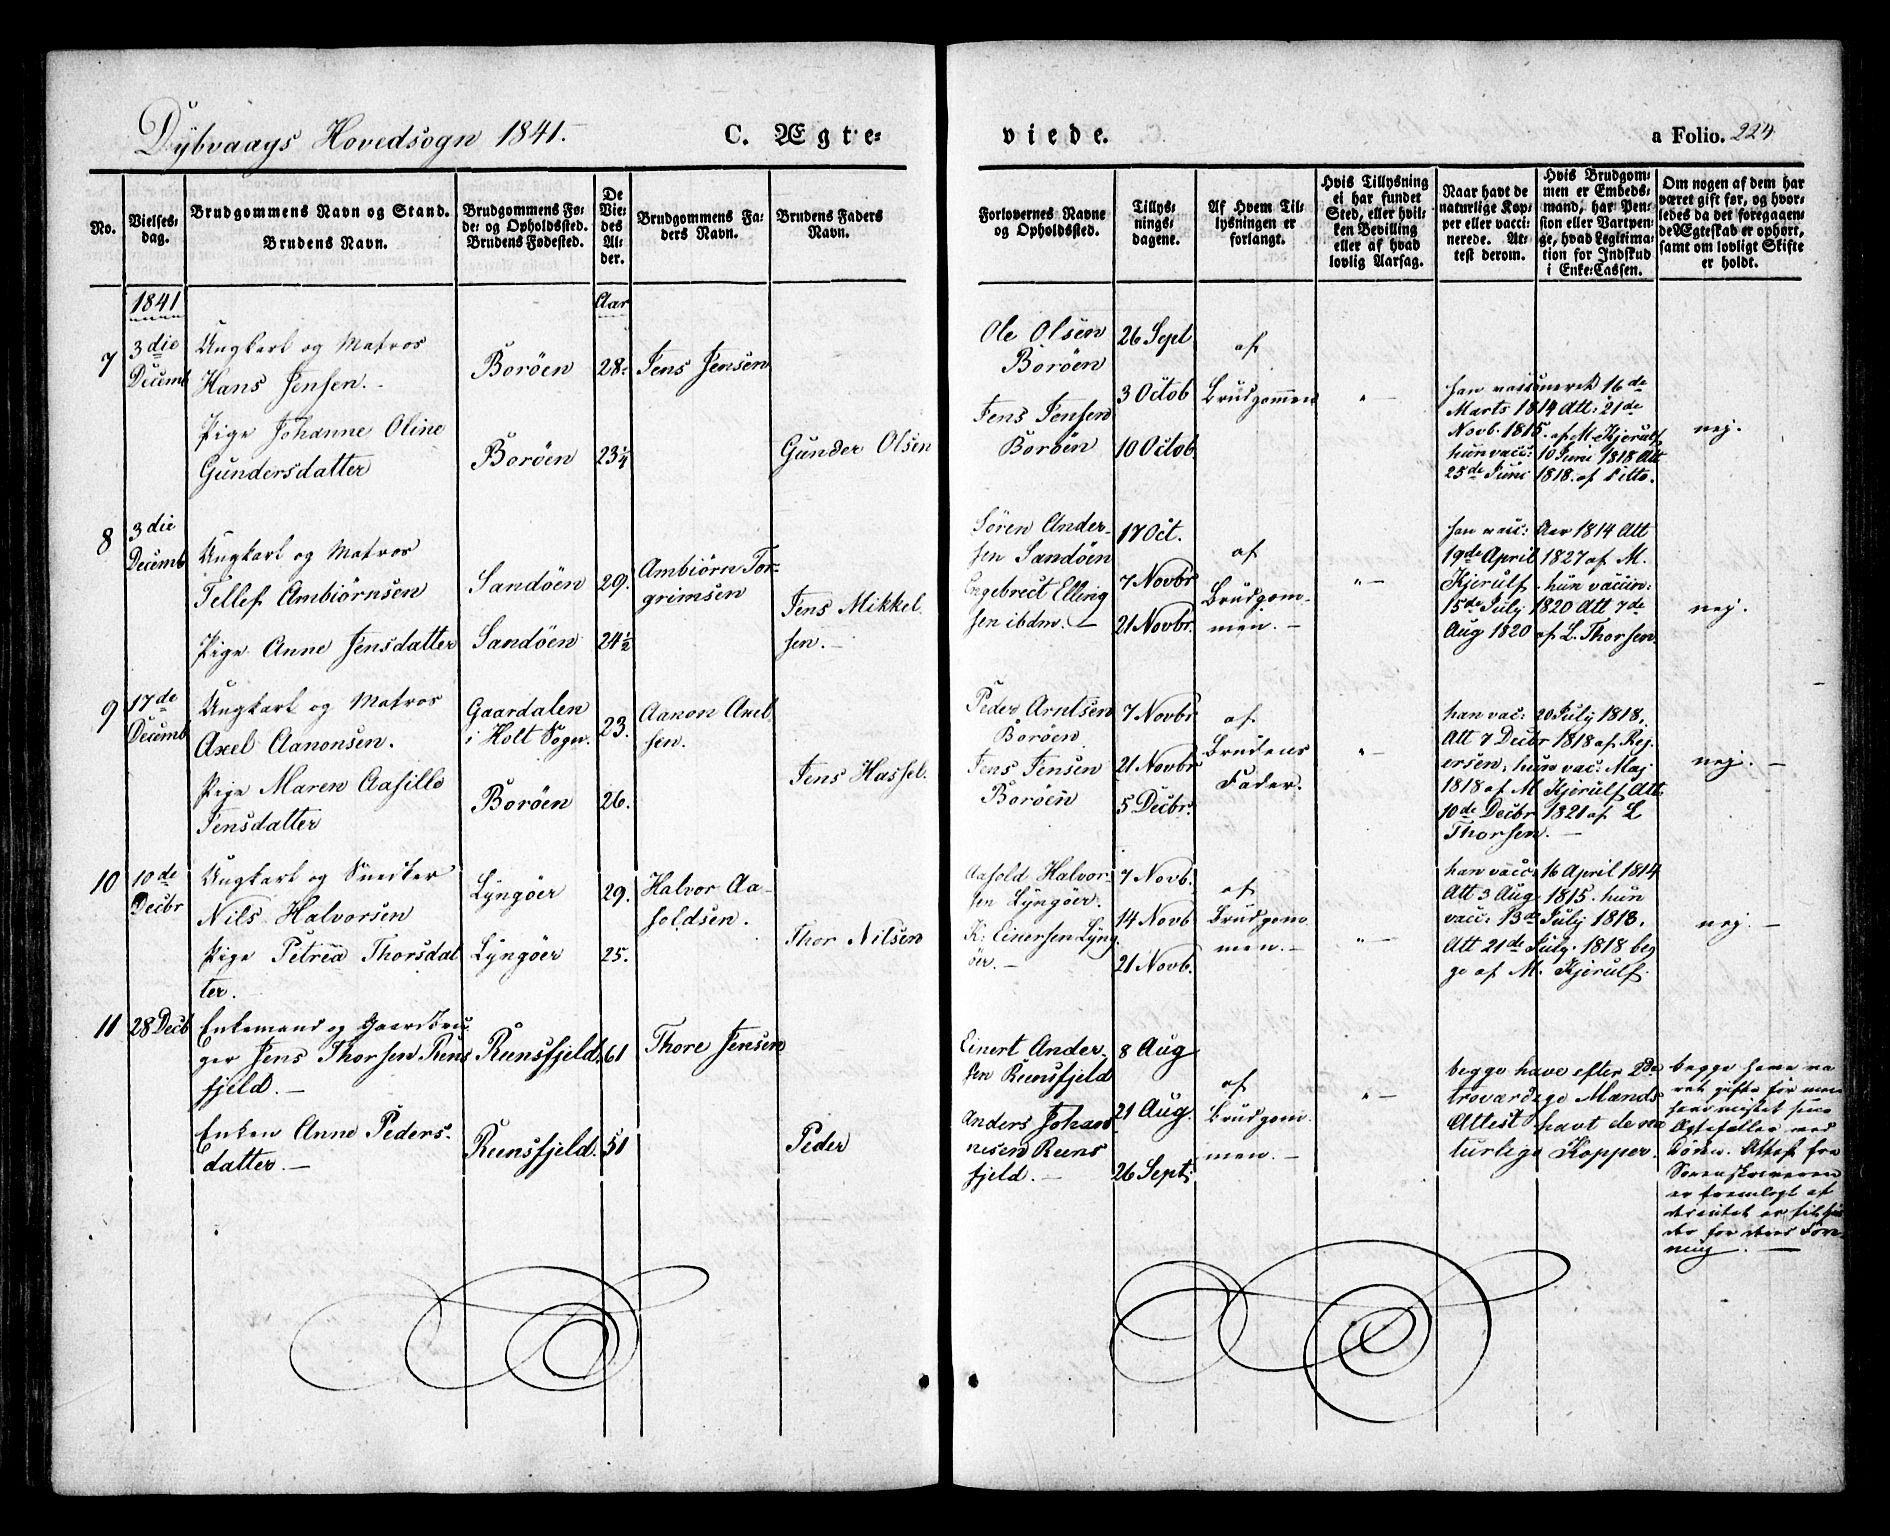 Dÿbvaags Hovedsogn 1841.
C. Ægte-
viede.
a Folio. 224
No.
Vielses-
dag.
Brudgommens Navn og Stand.
Brudens Navn.
Brudgommens Fø-
de- og Opholdssted.
Brudens Fødested.
De
Vie-
des
Al-
der.
Brudgommens Fa-
ders Navn.
Brudens Faders
Navn.
Forlovernes Navne
og Opholdssted.
Tillys-
nings-
dagene.
Af Hvem Til-
lysningen er
forlangt.
Hvis Tillysning
ei har fundet
Sted, eller hvil-
ken Bevilling
eller af hvad
lovlig Aarsag.
Naar havt de
naturlige Kop-
per eller vacci-
nerede. At-
test derom.
Hvis Brudgom-
men er Embeds-
mand, har Pen-
sion eller Vartpen-
ge, hvad Legitima-
tion for Indskud
i Enke-Cassen.
Om nogen af dem har
været gift før, og hvor-
ledes da det foregaaen-
de Ægteskab er ophørt,
samt om lovligt Skifte
er holdt.
1841
Aar
7
3 die
Decemb
Ungkarl og Matros
Hans Jensen.
Boröen
28.
Jens Jensen
Pige Johanne Oline
Gundersdatter
Boröen
23¼
Gunder Olsen
Ole Olsen
Boröen
Jens Jensen
Boröen
26 Sept
3 Octob
10 Octob
af
Brudgommen
" —
han vaccineret 16de
Marts 1814 Att: 21de
Novb. 1815. af M. Kjerulf
hun vacc: 10 Juni 1818 Att
25de Juni 1818. af Ditto.
nej.
8
3 die
Decemb
Ungkarl og Matros
Tellef Ambiörnsen
Sandöen
29.
Ambiörn Tor-
grimsen
Pige Anne Jensdatter
Sandöen
24½
Jens Mikkel-
sen.
Sören Ander-
sen Sandöen
Engebrect Elling
sen ibdm.
17 Oct.
7 Novbr
21 Novbr.
af
Brudgom-
men.
" —
han vacc: Aar 1814 Att
19de April 1827 af M.
Kjerulf. hun vaccin:
15de July 1820 Att 7de
Aug 1820 af L. Thorsen.
nej.
9
17de
Decemb
Ungkarl og Matros
Axel Aanonsen.
Gaardalen
i Holt Sogn.
23.
Aanon Axel
sen.
Pige Maren Aasille
Jensdatter
Boröen
26.
Jens Hassel.
Peder Arntsen
Boröen
Jens Jensen
Boröen
7 Novbr
21 Novbr
5 Decbr.
af
Brudens
Fader.
" —
han vac: 20 July 1818,
Att 7 Decbr 1818 af Rej-
ersen, hun vac: Maj
1818 af M Kjerulf Att.
10de Decbr 1821 af L
Thorsen. —
nej. —
10
10de
Decbr
Ungkarl og Snedker
Nils Halvorsen
Lÿngöer
29.
Halvor Aa-
soldsen.
Pige Petrea Thorsdat
ter.
Lÿngöer
25.
Thor Nilsen
Aasold Halvor-
sen Lÿngöer.
K: Einersen Lÿng
öer. —
7 Novb.
14 Novb
21 Novb.
af
Brudgom
men. —
" —
han vacc: 16 April 1814
Att 3 Aug 1815. hun
vacc: 13de July 1818.
Att 21de July 1818 beg
ge af M. Kjerulf.
nej. —
11
28 Decb
Enkemand og Gaardbru
ger Jens Thorsen Rens
fjeld. —
Rensfjeld.
61
Thore Jensen
Enken Anne Peders-
datter. —
Rensfjeld.
51
Peder
Einert Ander-
sen Rensfjeld
Anders Johan
nesen Rens
fjeld. —
8 Aug
21 Aug.
26 Sept:
af
Brudgom
men. —
" —
begge have efter 2de
troværdige Mænds
Attest havt de na
turlige Kopper.
begge have væ
ret gifte før men
have mistet sine
Ægtefæller ved
Døden. Attest fra
Sorenskriveren
er fremlagt at
for
ning. —